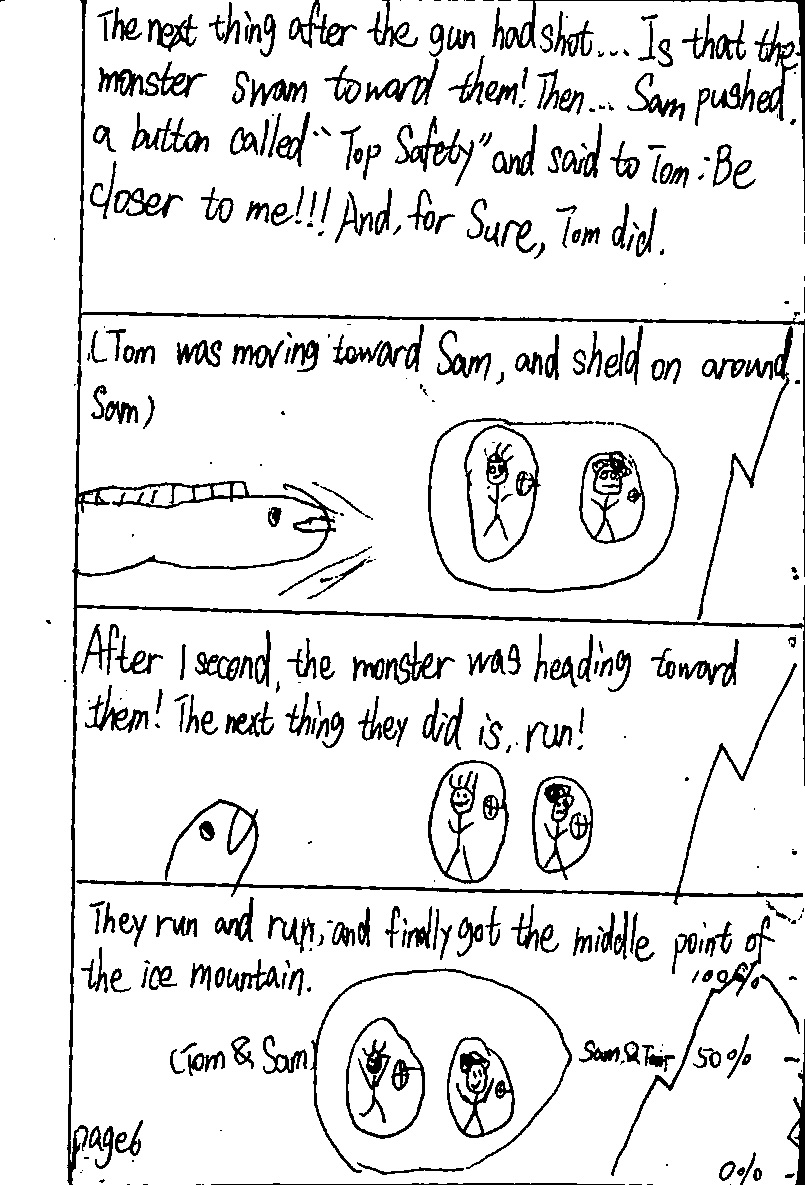 The next thing after the gun had shot... Is that the
monster swam toward them! Then... Sam pushed
a button called "Top Safety" and said to Tom: Be
closer to me!!! And, for Sure, Tom did.
(Tom was moving toward Sam, and sheld on around
Sam)
After 1 second, the monster was heading toward
them! The next thing they did is, run!
They run and run, and finally got the middle point of
the ice mountain.
100%
(Tom & Sam)
Sam & Tom
50%
page6
0%